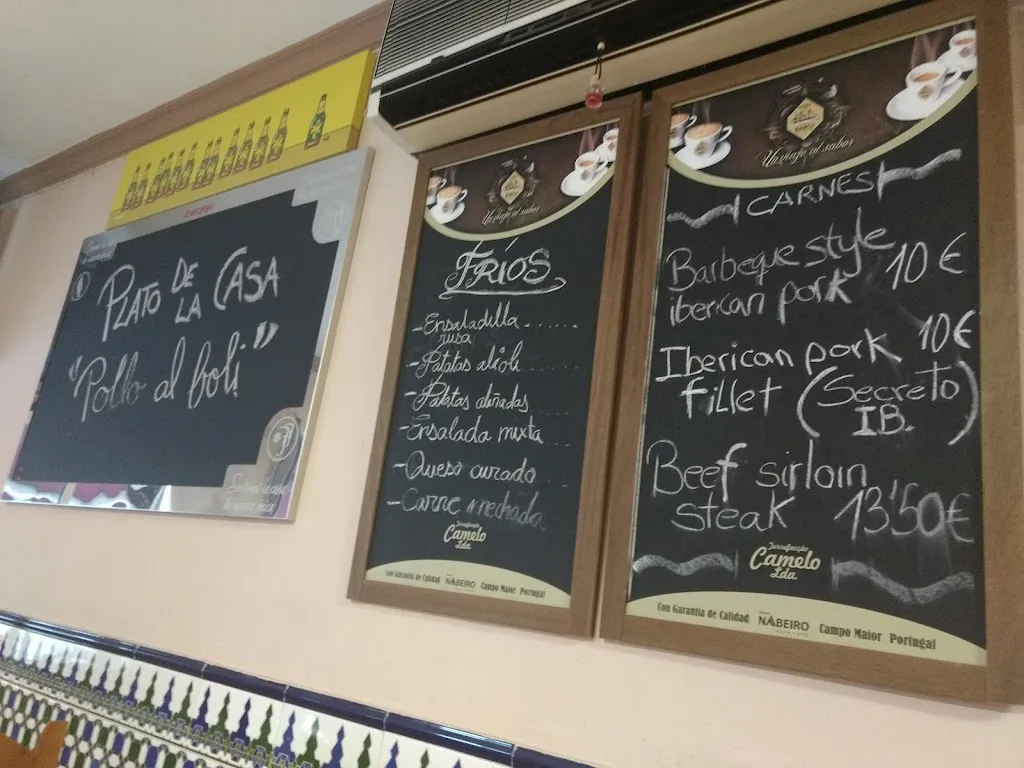 PLATO DE LA CASA
"Pollo al boli"
Un viaje al sabor
FRÍOS
-Ensaladilla rusa......
-Patatas alioli
-Patatas aliñadas
-Ensalada mixta....
-Queso curado....
-Carne mechada
Torrefacção
Camelo
Lda
Con Garantía de Calidad NABEIRO Campo Maior Portugal
Un viaje al sabor
CARNES
Barbeque style 10 €
iberican pork
Iberican pork 10 €
fillet (Secreto IB.)
Beef sirloin
steak 13'50€
Torrefacção
Camelo
Lda
Con Garantía de Calidad NABEIRO Campo Maior Portugal